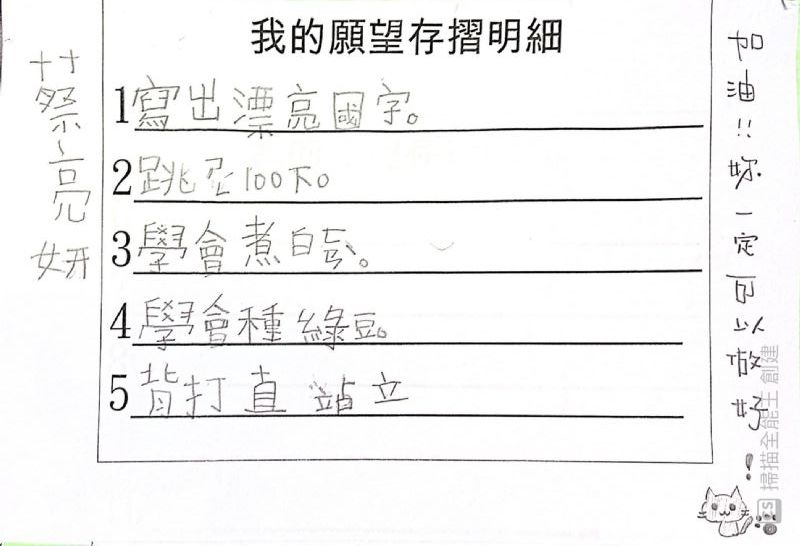 我的願望存摺明細
1 寫出漂亮國字。
2 跳ㄕㄥˊ100下。
3 學會煮白ㄎㄞ。
4 學會種綠豆。
5 背打直站立
蔡亮妍
加油!!妳一定可以做好!
CS 掃描全能王 創建